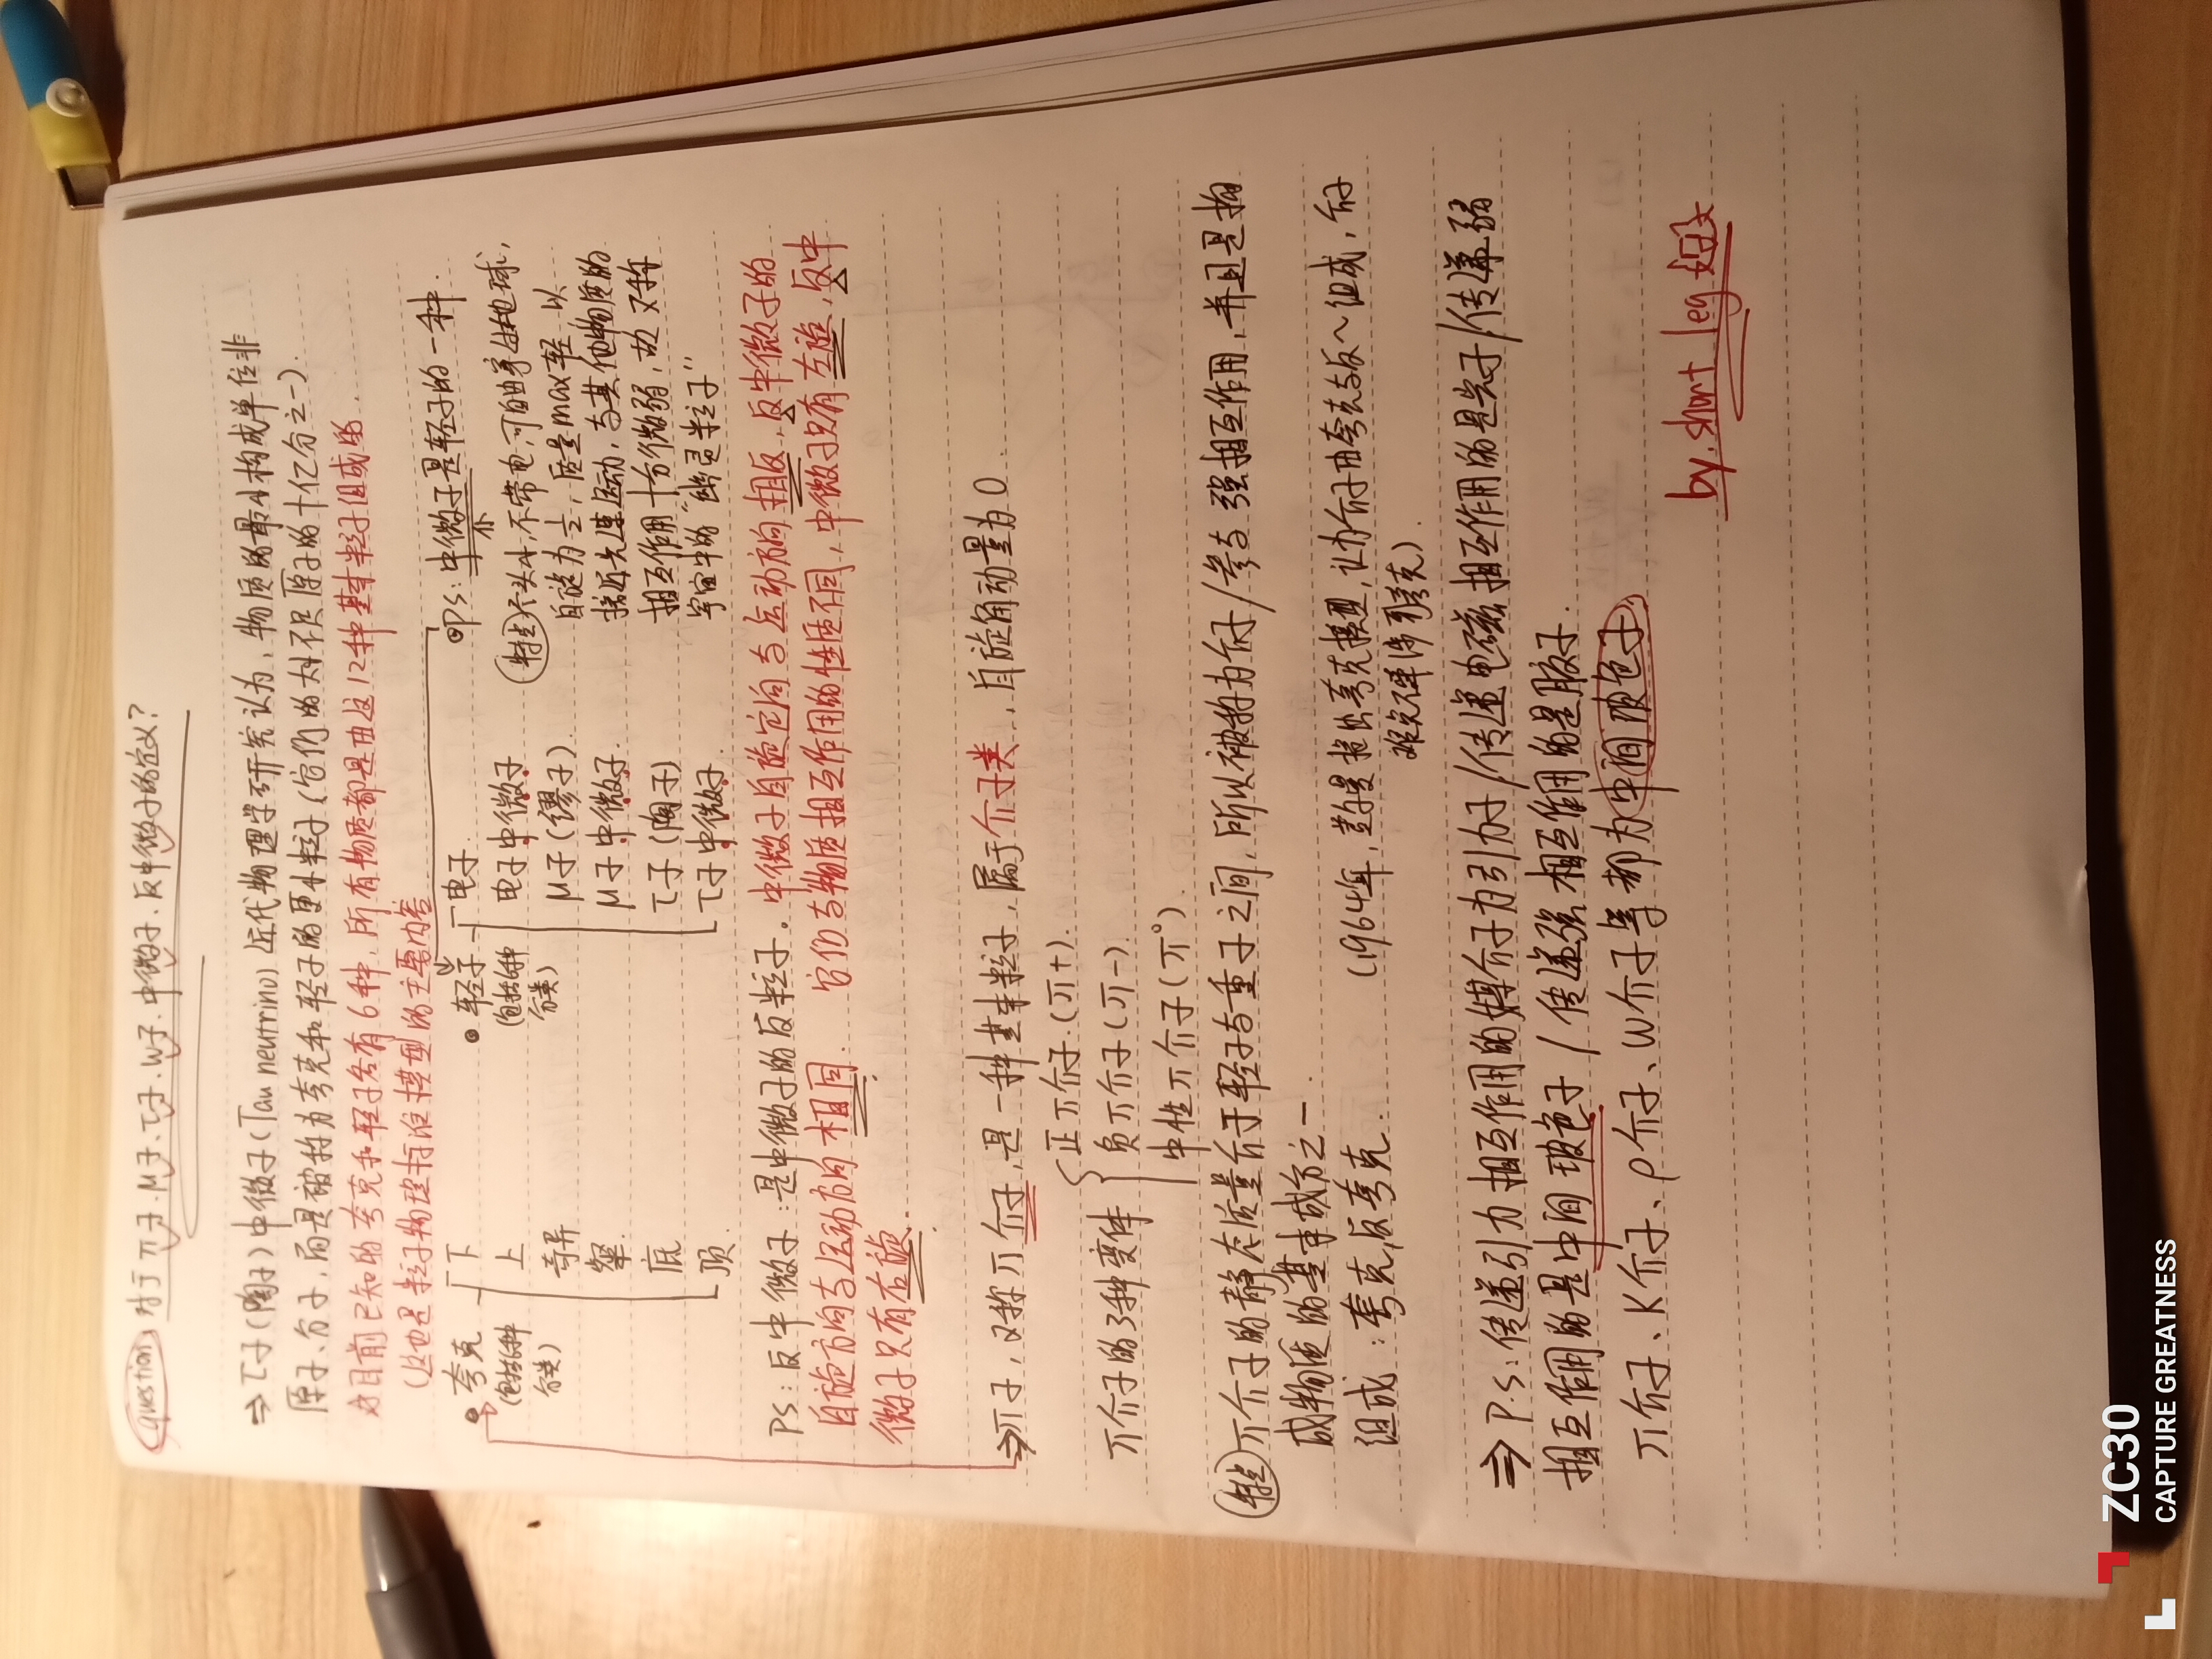 Question: 对于π子.μ子.τ子.W子.中微子.反中微子的定义?
⇒ τ子(陶子)中微子(Tau neutrino) 近代物理学研究认为,物质的最小构成单位非
原子、分子,而是被称为夸克和轻子的更小粒子(它们的大小不足原子的十亿分之一).
目前已知的夸克和轻子各有6种,所有物质都是由这12种基本粒子组成的.
(这也是粒子物理标准模型的主要内容
夸克
(包括6种
分类)
下
上
奇异
粲
底
顶
轻子
(包括6种
分类)
电子
电子中微子
μ子(缪子).
μ子中微子.
τ子(陶子)
τ子中微子.
Ps:中微子是轻子的一种.
特点 个头小,不带电,可自由穿过地球,
自旋为½,质量max轻,以
接近光速运动,与其他物质的
相互作用十分微弱,故又称
宇宙中的“幽灵粒子”
Ps:反中微子:是中微子的反粒子.中微子自旋方向与运动方向相反,反中微子的
自旋方向与运动方向相同.它们与物质相互作用的性质不同,中微子只有左旋,反中
微子只有右旋.
⇒π子,又称π介子,是一种基本粒子,属于介子类,自旋角动量为0.
π介子的3种变体
正π介子.(π+).
负π介子(π-).
中性π介子(π°).
特点 π介子的静态质量介于轻子与重子之间,所以被称为介子/参与强相互作用,并且是构
成物质的基本成分之一.
组成:夸克,反夸克.
(1964年,盖尔曼提出夸克模型,认为介子由夸克与反~组成,介子
相互作用的是中间玻色子/传递强相互作用的是胶子.
⇒ P.s:传递引力相互作用的媒介子为引力子/传递电磁相互作用的是光子/传递弱
π介子、K介子、ρ介子、W介子等都为中间玻色子
by.short leg 好